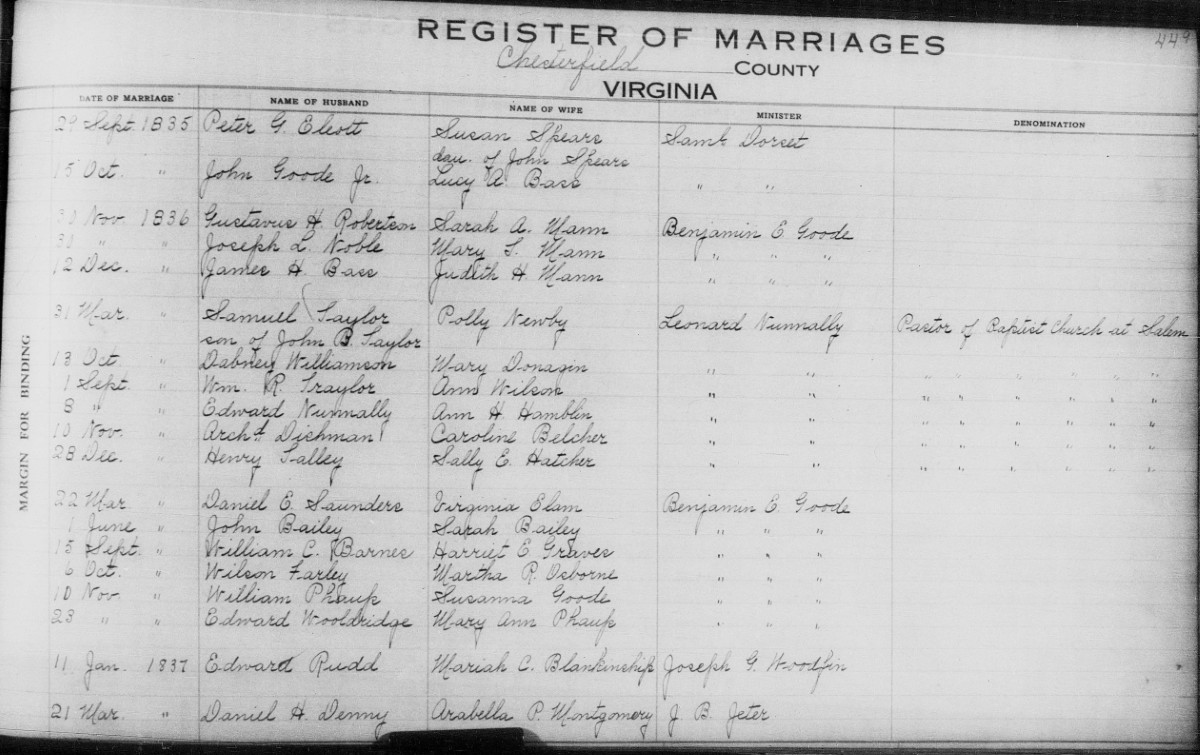 449
REGISTER OF MARRIAGES
Chesterfield COUNTY
VIRGINIA
DATE OF MARRIAGE NAME OF HUSBAND NAME OF WIFE MINISTER DENOMINATION
29 Sept. 1835 Peter G. Elcott Susan Spears Saml Dorset
dau. of John Spears
15 Oct. " John Goode Jr. Lucy A. Bass " "
Nov 1836 Gustavus H. Robertson Sarah A. Mann Benjamin E Goode
" " Joseph L. Noble Mary S. Mann " " "
12 Dec. " James H. Bass Judith H. Mann " " "
31 Mar. " Samuel Taylor Polly Newby Leonard Nunnally Pastor of Baptist Church at Salem
son of John B. Taylor
13 Oct. " Dabney Williamson Mary Donagin " " " " " " " "
1 Sept. " Wm. R. Traylor Ann Wilson " " " " " " " "
8 " " Edward Nunnally Ann H Hamblin " " " " " " " "
10 Nov. " Archd Dishman Caroline Belcher " " " " " " " "
28 Dec. " Henry Talley Sally E. Hatcher " " " " " " " "
22 Mar " Daniel E. Saunders Virginia Elam Benjamin E. Goode
1 June " John Bailey Sarah Bailey " " "
15 Sept. " William C. Barnes Harriet E Graves " " "
6 Oct. " Wilson Farley Martha R. Osborne " " "
10 Nov. " William Phaup Susanna Goode " " "
23 " " Edward Wooldridge Mary Ann Phaup " " "
11 Jan. 1837 Edward Rudd Mariah C. Blankinship Joseph G. Woodfin
21 Mar. " Daniel H. Denny Arabella P. Montgomery J. B. Jeter
MARGIN FOR BINDING